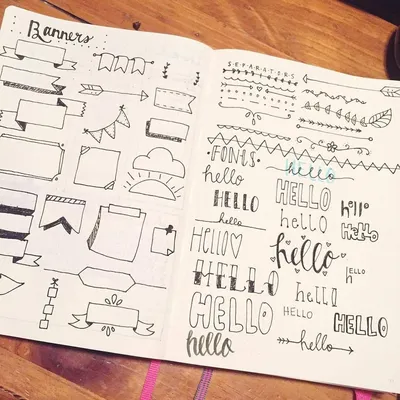 Banners
SEPARATERS
FONTS
hello
hello
HELLO
HELLO
hello
hello
hello
HELLO
HELLO
hello
hello
HELLO
hello
HELLO
HELLO
HELLO
hello
hello